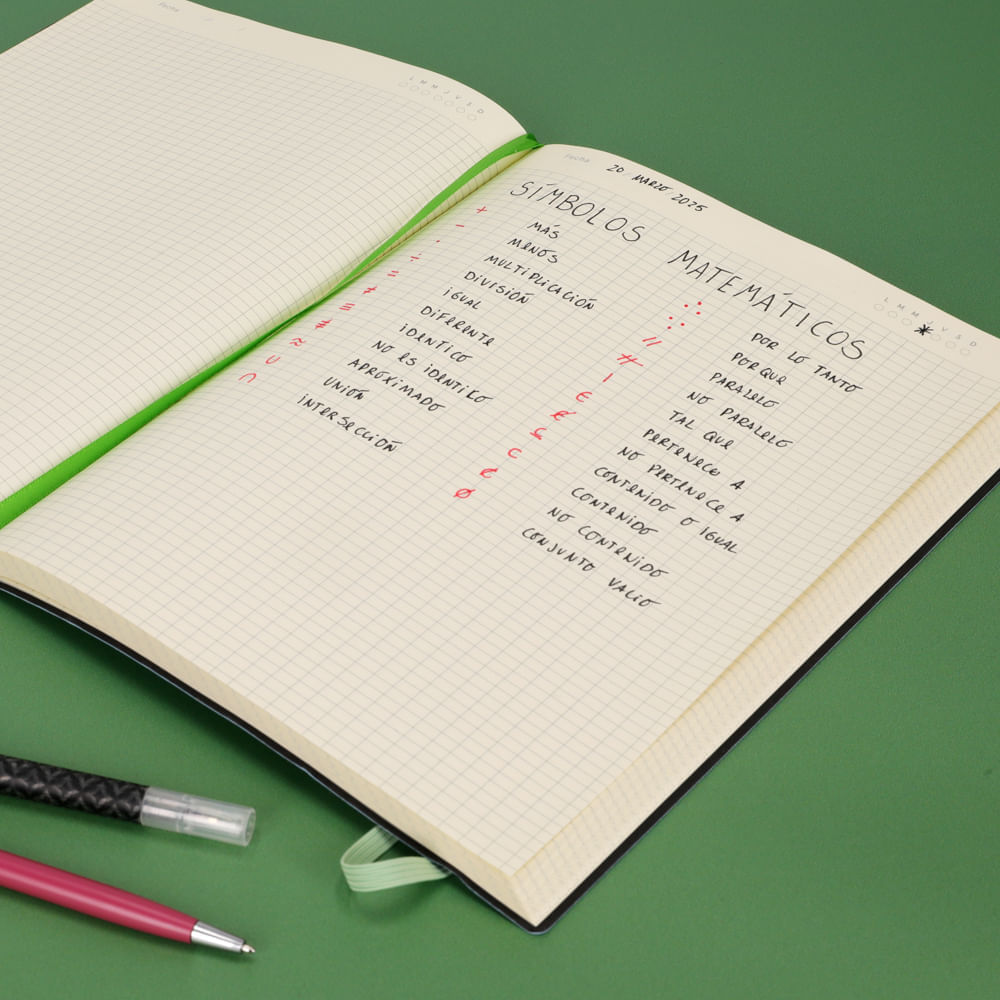 Fecha
L M M J V S D
Fecha 20 MARZO 2025
L M M J V S D
SÍMBOLOS MATEMÁTICOS
+ MÁS
- MENOS
· MULTIPLICACIÓN
÷ DIVISIÓN
= IGUAL
≠ DIFERENTE
≡ IDENTICO
≢ NO ES IDENTICO
≈ APROXIMADO
∪ UNIÓN
∩ INTERSECCIÓN
∴ POR LO TANTO
∵ PORQUE
// PARALELO
∦ NO PARALELO
| TAL QUE
∈ PERTENECE A
∉ NO PERTENECE A
⊆ CONTENIDO O IGUAL
⊂ CONTENIDO
⊄ NO CONTENIDO
Ø CONJUNTO VACIO